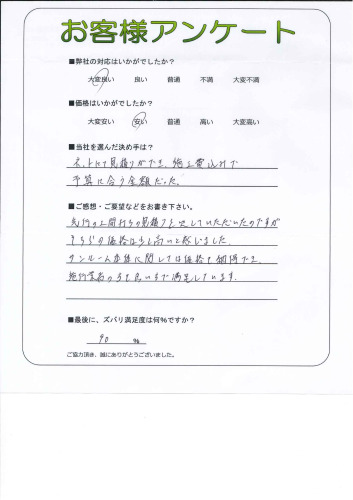 お客様アンケート
■弊社の対応はいかがでしたか?
大変良い 良い 普通 不満 大変不満
■価格はいかがでしたか?
大変安い 安い 普通 高い 大変高い
■当社を選んだ決め手は?
ネットにて見積りができ、施工費込みで
予算に合う金額だった。
■ご感想・ご要望などをお書き下さい。
の土間打ちの見積りをしていただいたのですが
そちらの価格は少し高いと感じました。
サンルーム本体に関しては価格も納得でき、
施行業者の方も良い方で満足しています。
■最後に、ズバリ満足度は何%ですか?
90 %
ご協力頂き、誠にありがとうございました。